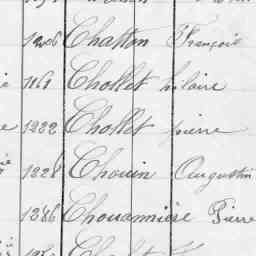 1206 Chatton François
1161 Chollet hilaire
1222 Chollet pierre
1228 Chouin Augustin
1286 Chouannière Pierre